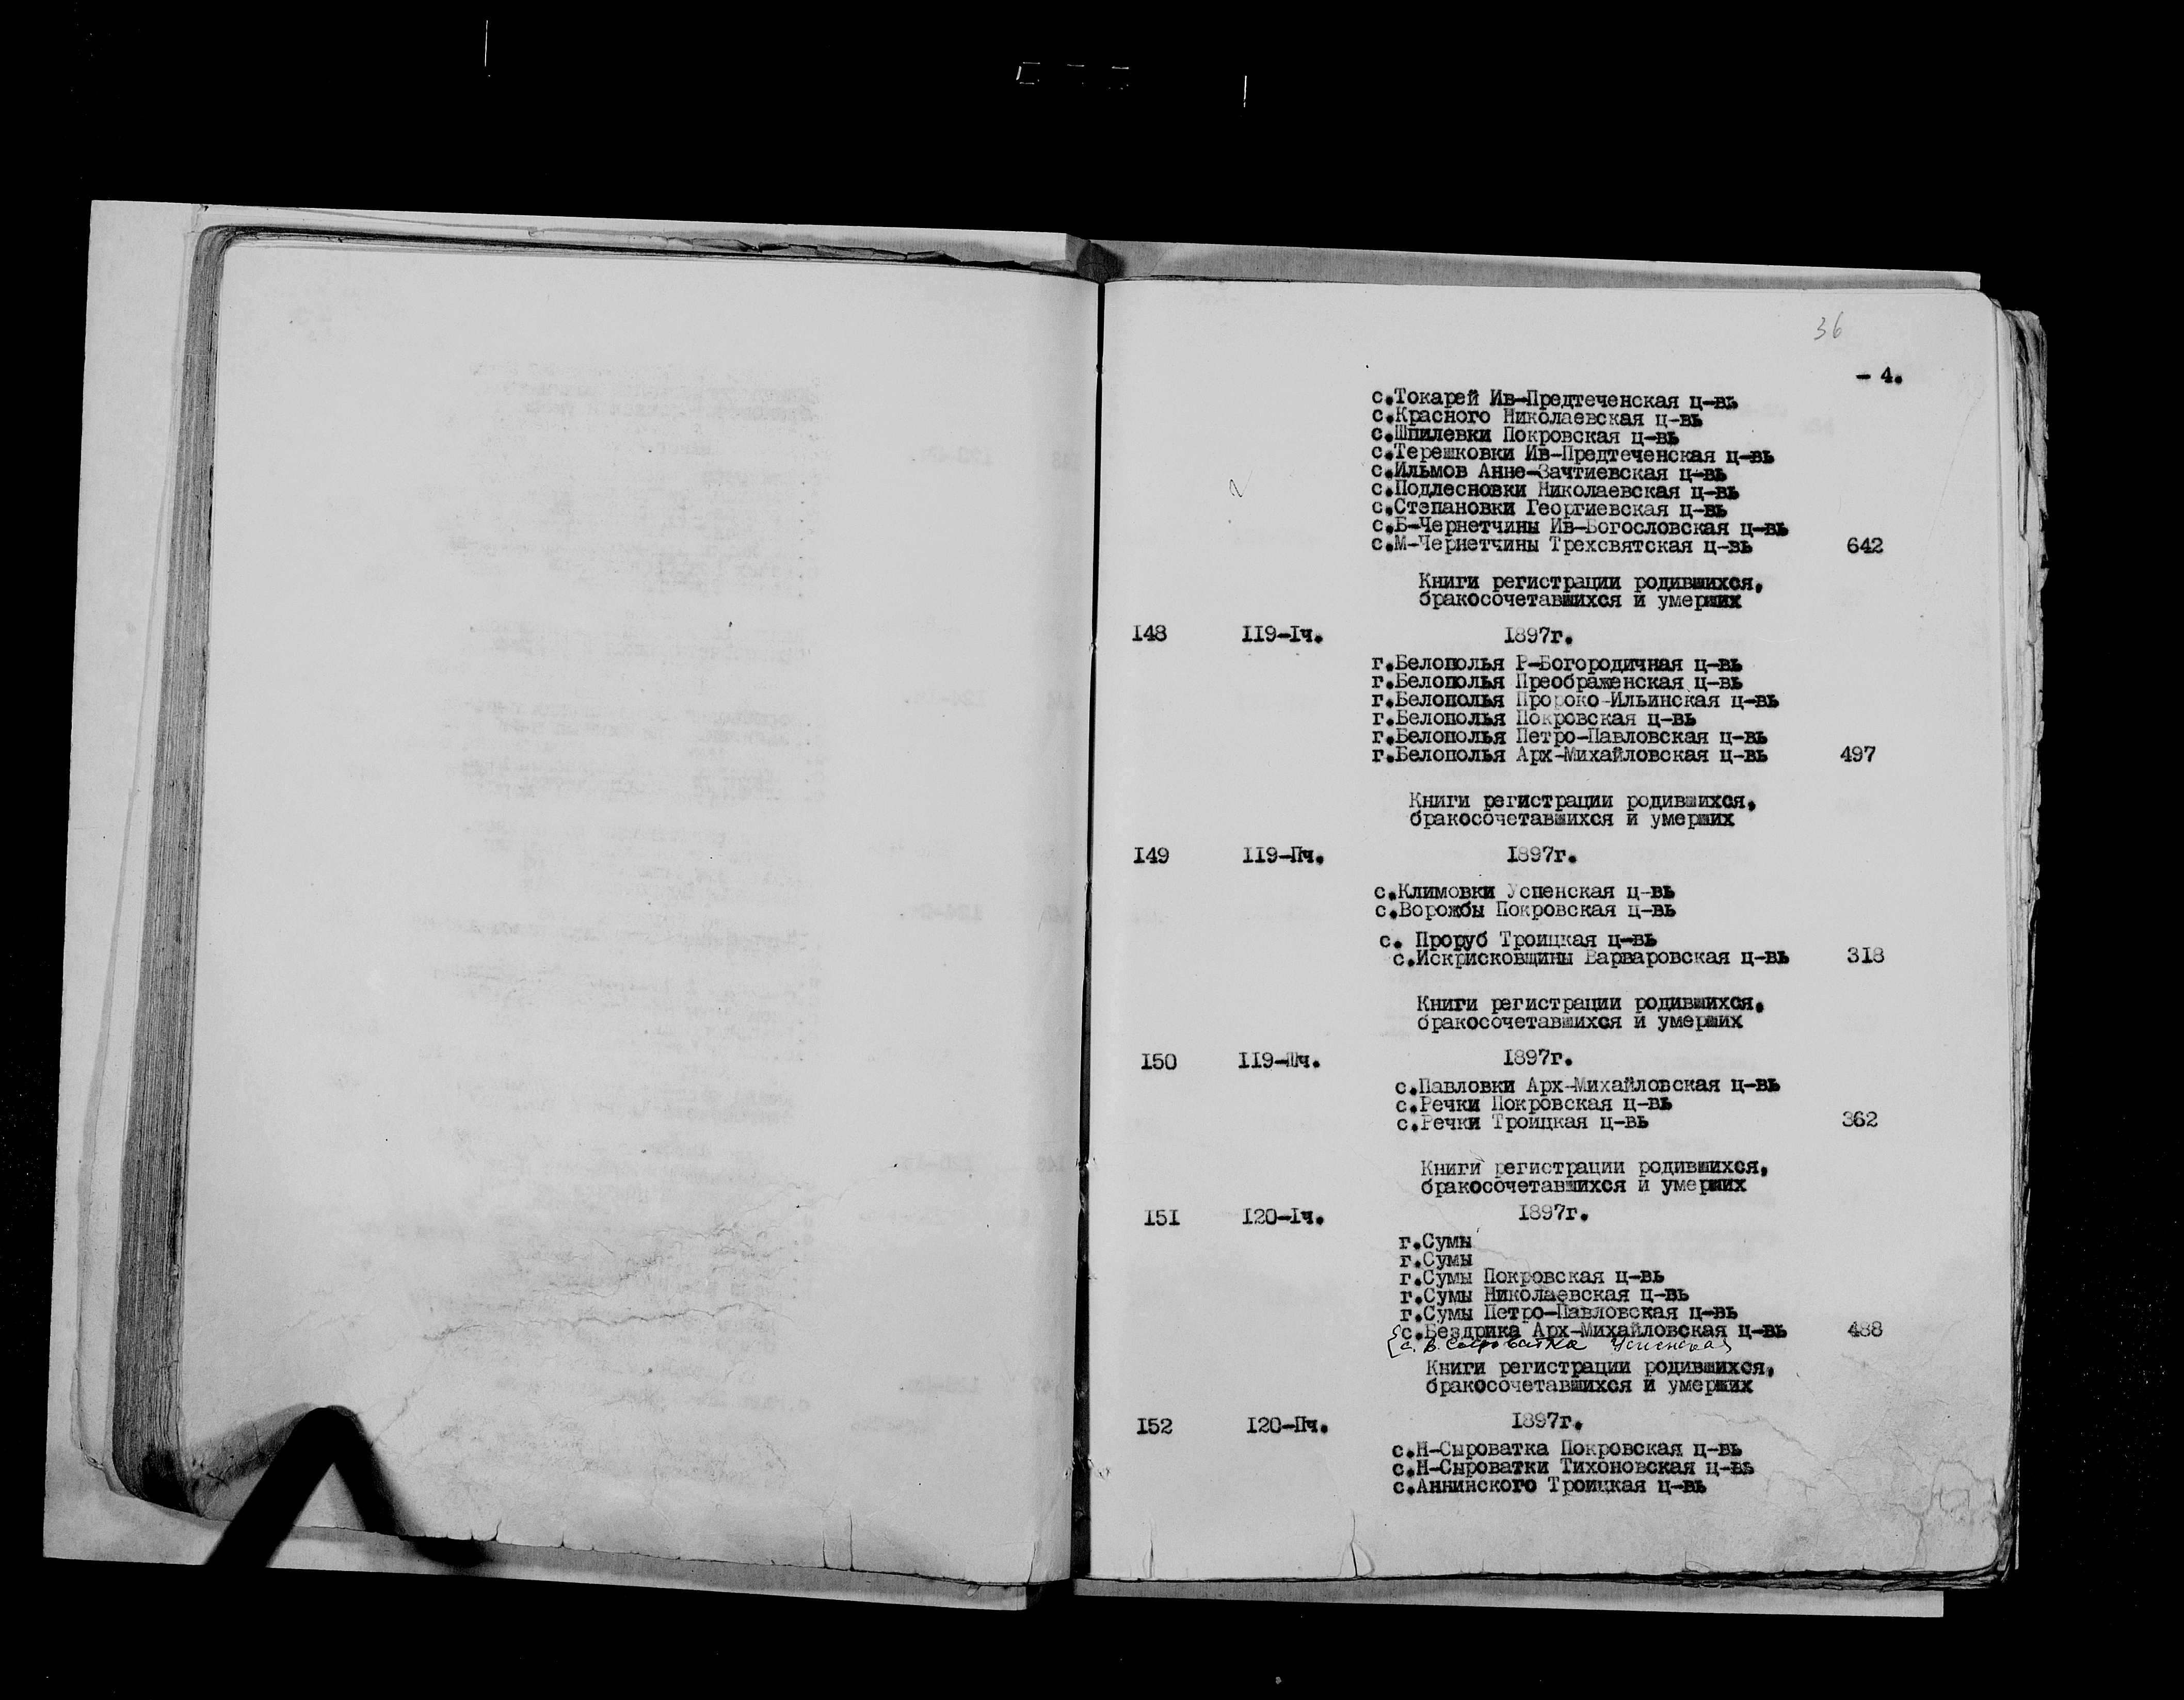 36
- 4.
с.Токарей Ив-Предтеченская ц-вь
с.Красного Николаевская ц-вь
с.Шпилевки Покровская ц-вь
с.Терешковки Ив-Предтеченская ц-вь
с.Ильмов Анне-Зачтиевская ц-вь
с.Подлесновки Николаевская ц-вь
с.Степановки Георгиевская ц-вь
с.Б-Чернетчины Ив-Богословская ц-вь
с.М-Чернетчины Трехсвятская ц-вь 642
Книги регистрации родившихся,
бракосочетавшихся и умерших
I48 II9-Iч. I897г.
г.Белополья Р-Богородичная ц-вь
г.Белополья Преображенская ц-вь
г.Белополья Пророко-Ильинская ц-вь
г.Белополья Покровская ц-вь
г.Белополья Петро-Павловская ц-вь
г.Белополья Арх-Михайловская ц-вь 497
Книги регистрации родившихся,
бракосочетавшихся и умерших
I49 II9-Пч. I897г.
с.Климовки Успенская ц-вь
с.Ворожбы Покровская ц-вь
с. Проруб Троицкая ц-вь
с.Искрисковщины Варваровская ц-вь 3I8
Книги регистрации родившихся,
бракосочетавшихся и умерших
I50 II9-Шч. I897г.
с.Павловки Арх-Михайловская ц-вь
с.Речки Покровская ц-вь
с.Речки Троицкая ц-вь 362
Книги регистрации родившихся,
бракосочетавшихся и умерших
I5I I20-Iч. I897г.
г.Сумы
г.Сумы
г.Сумы Покровская ц-вь
г.Сумы Николаевская ц-вь
г.Сумы Петро-Павловская ц-вь
с.Бездрика Арх-Михайловская ц-вь 488
с. В. Сыроватка Успенская
Книги регистрации родившихся,
бракосочетавшихся и умерших
I52 I20-Пч. I897г.
с.Н-Сыроватка Покровская ц-вь
с.Н-Сыроватки Тихоновская ц-вь
с.Аннинского Троицкая ц-вь